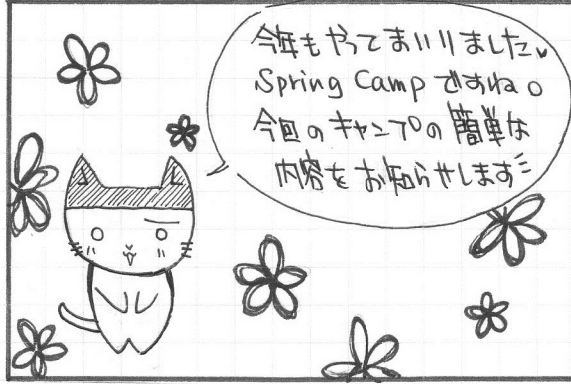 今年もやってまいりました
Spring Campですね。
今回のキャンプの簡単な
内容をお知らせします